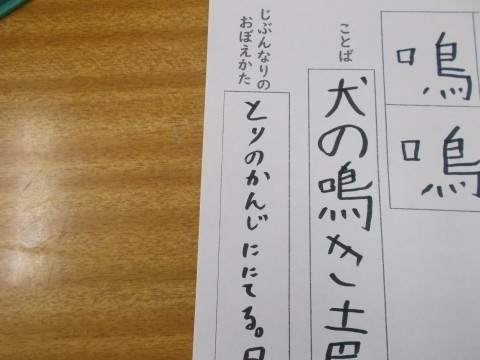 鳴
鳴
ことば
犬の鳴き声
じぶんなりの
おぼえかた
とりのかんじににてる。